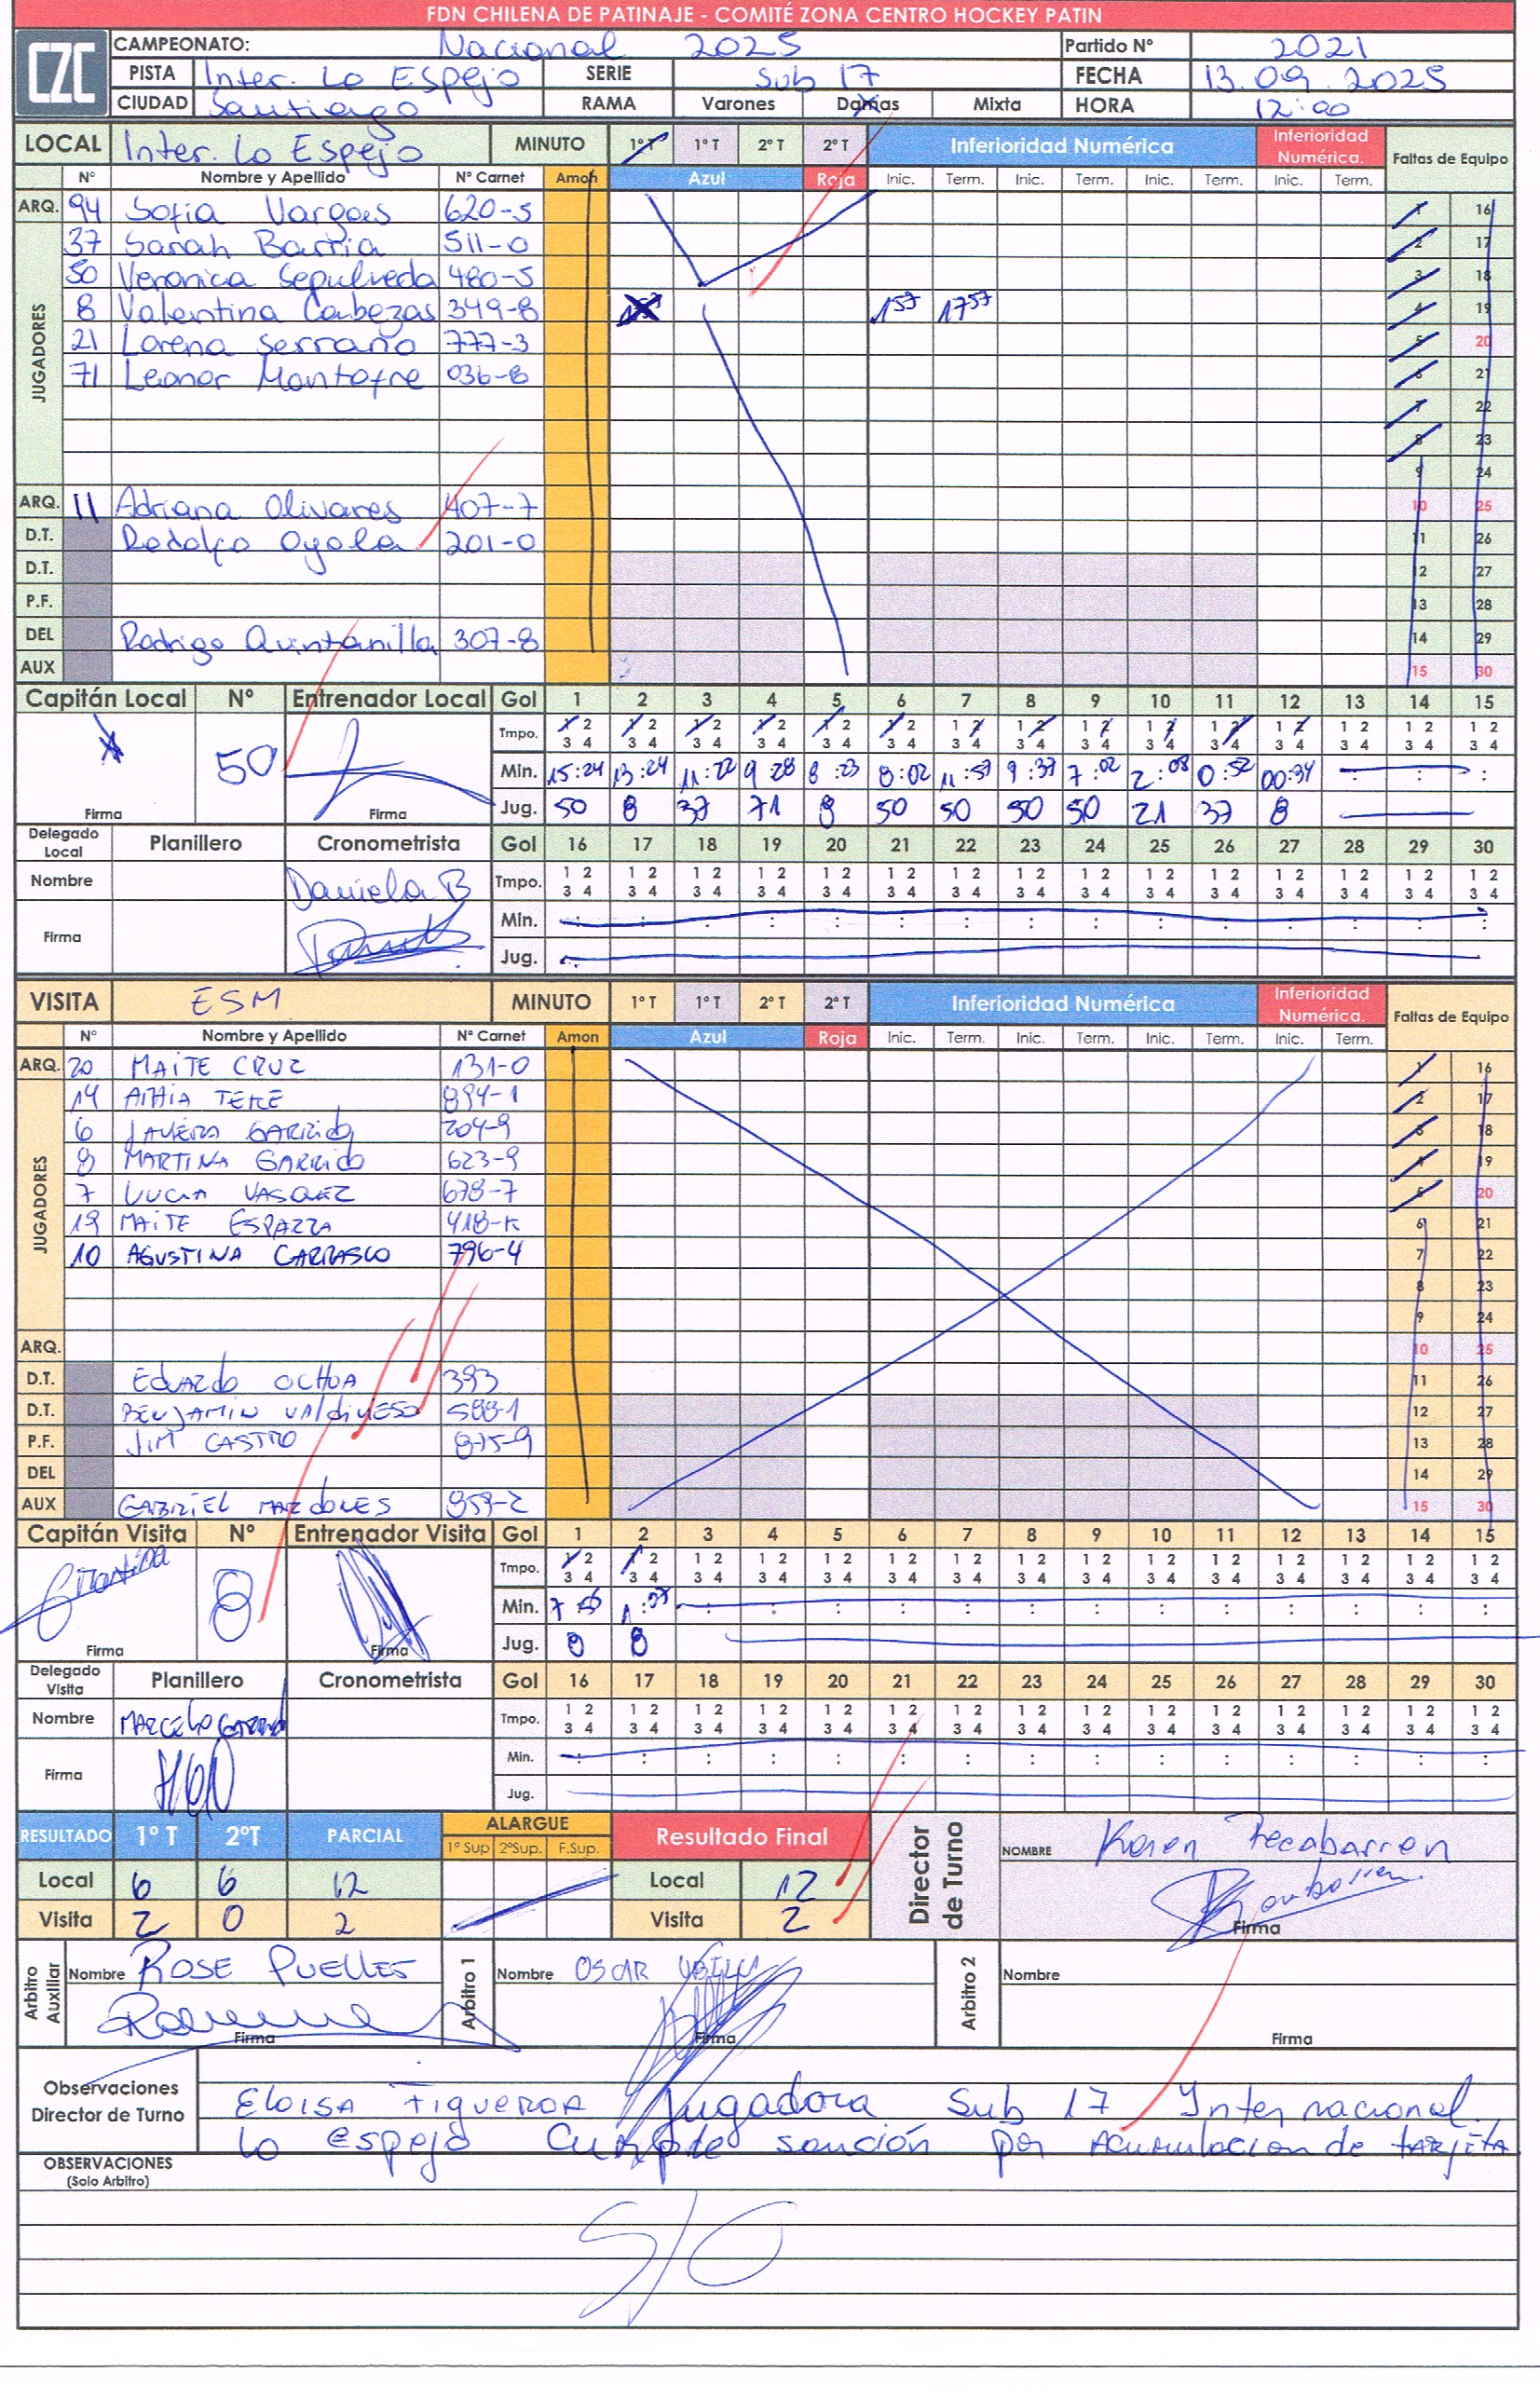 FDN CHILENA DE PATINAJE - COMITÉ ZONA CENTRO HOCKEY PATIN
CZC
CAMPEONATO: Nacional 2025 Partido Nº 2021
PISTA Inter. Lo Espejo SERIE Sub 17 FECHA 13.09.2025
CIUDAD Santiago RAMA Varones Damas Mixta HORA 12:00
LOCAL Inter. Lo Espejo MINUTO 1º T 1º T 2º T 2º T Inferioridad Numérica Inferioridad Numérica. Faltas de Equipo
Nº Nombre y Apellido Nº Carnet Amon Azul Roja Inic. Term. Inic. Term. Inic. Term. Inic. Term.
ARQ. 94 Sofia Vargas 620-5 1 16
JUGADORES
37 Sarah Barria 511-0 2 17
50 Veronica Sepulveda 480-5 3 18
8 Valentina Cabezas 349-8 1 57 17 57 4 19
21 Lorena Serrano 777-3 5 20
71 Leonor 036-8 6 21
7 22
8 23
9 24
ARQ. 11 Adriana Olivares 407-7 10 25
D.T. Rodolfo Oyola 201-0 11 26
D.T. 12 27
P.F. 13 28
DEL Rodrigo Quintanilla 307-8 14 29
AUX 15 30
Capitán Local Nº Entrenador Local Gol 1 2 3 4 5 6 7 8 9 10 11 12 13 14 15
Tmpo. 1 2 1 2 1 2 1 2 1 2 1 2 1 2 1 2 1 2 1 2 1 2 1 2 1 2 1 2 1 2
3 4 3 4 3 4 3 4 3 4 3 4 3 4 3 4 3 4 3 4 3 4 3 4 3 4 3 4 3 4
50 Min. 15:24 13:24 11:22 9 28 8:23 8:02 11:57 9:37 7:02 2:08 0:52 00:34 : : :
Firma Firma Jug. 50 8 37 71 8 50 50 50 50 21 37 8
Delegado Local Planillero Cronometrista Gol 16 17 18 19 20 21 22 23 24 25 26 27 28 29 30
Nombre Daniela B Tmpo. 1 2 1 2 1 2 1 2 1 2 1 2 1 2 1 2 1 2 1 2 1 2 1 2 1 2 1 2 1 2
3 4 3 4 3 4 3 4 3 4 3 4 3 4 3 4 3 4 3 4 3 4 3 4 3 4 3 4 3 4
Firma Min. : : : : : : : : : : : : : : :
Jug.
VISITA ESM MINUTO 1º T 1º T 2º T 2º T Inferioridad Numérica Inferioridad Numérica. Faltas de Equipo
Nº Nombre y Apellido Nº Carnet Amon Azul Roja Inic. Term. Inic. Term. Inic. Term. Inic. Term.
ARQ. 20 MAITE CRUZ 131-0 1 16
JUGADORES
14 894-1 2 17
6 JAVIERA GARRIDO 204-9 3 18
8 MARTINA GARRIDO 623-9 4 19
7 LUCIA VASQUEZ 678-7 5 20
19 MAITE 418-K 6 21
10 AGUSTINA CARRASCO 796-4 7 22
8 23
9 24
ARQ. 10 25
D.T. EDUARDO OCHOA 393 11 26
D.T. BENJAMIN VALDIVIESO 588-1 12 27
P.F. JIM CASTRO 875-9 13 28
DEL 14 29
AUX GABRIEL MARDONES 959-2 15 30
Capitán Visita Nº Entrenador Visita Gol 1 2 3 4 5 6 7 8 9 10 11 12 13 14 15
Martina 8 Tmpo. 1 2 1 2 1 2 1 2 1 2 1 2 1 2 1 2 1 2 1 2 1 2 1 2 1 2 1 2 1 2
3 4 3 4 3 4 3 4 3 4 3 4 3 4 3 4 3 4 3 4 3 4 3 4 3 4 3 4 3 4
Min. 7 : : : : : : : : : : : : :
Firma Firma Jug. 8 8
Delegado Visita Planillero Cronometrista Gol 16 17 18 19 20 21 22 23 24 25 26 27 28 29 30
Nombre MARCELO Tmpo. 1 2 1 2 1 2 1 2 1 2 1 2 1 2 1 2 1 2 1 2 1 2 1 2 1 2 1 2 1 2
3 4 3 4 3 4 3 4 3 4 3 4 3 4 3 4 3 4 3 4 3 4 3 4 3 4 3 4 3 4
Firma Min. : : : : : : : : : : : : : : :
Jug.
RESULTADO 1º T 2ºT PARCIAL ALARGUE Resultado Final Director de Turno NOMBRE Karen Recabarren
1º Sup 2ºSup. F.Sup.
Local 6 6 12 Local 12
Visita 2 0 2 Visita 2 Firma
Arbitro Auxiliar Nombre ROSE PUELLES Arbitro 1 Nombre OSCAR Arbitro 2 Nombre
Firma Firma Firma
Observaciones Director de Turno
ELOISA FIGUEROA Jugadora Sub 17 Internacional.
Lo Espejo Cumple sanción por Acumulacion de tARJETA
OBSERVACIONES
(Solo Arbitro)
S/O